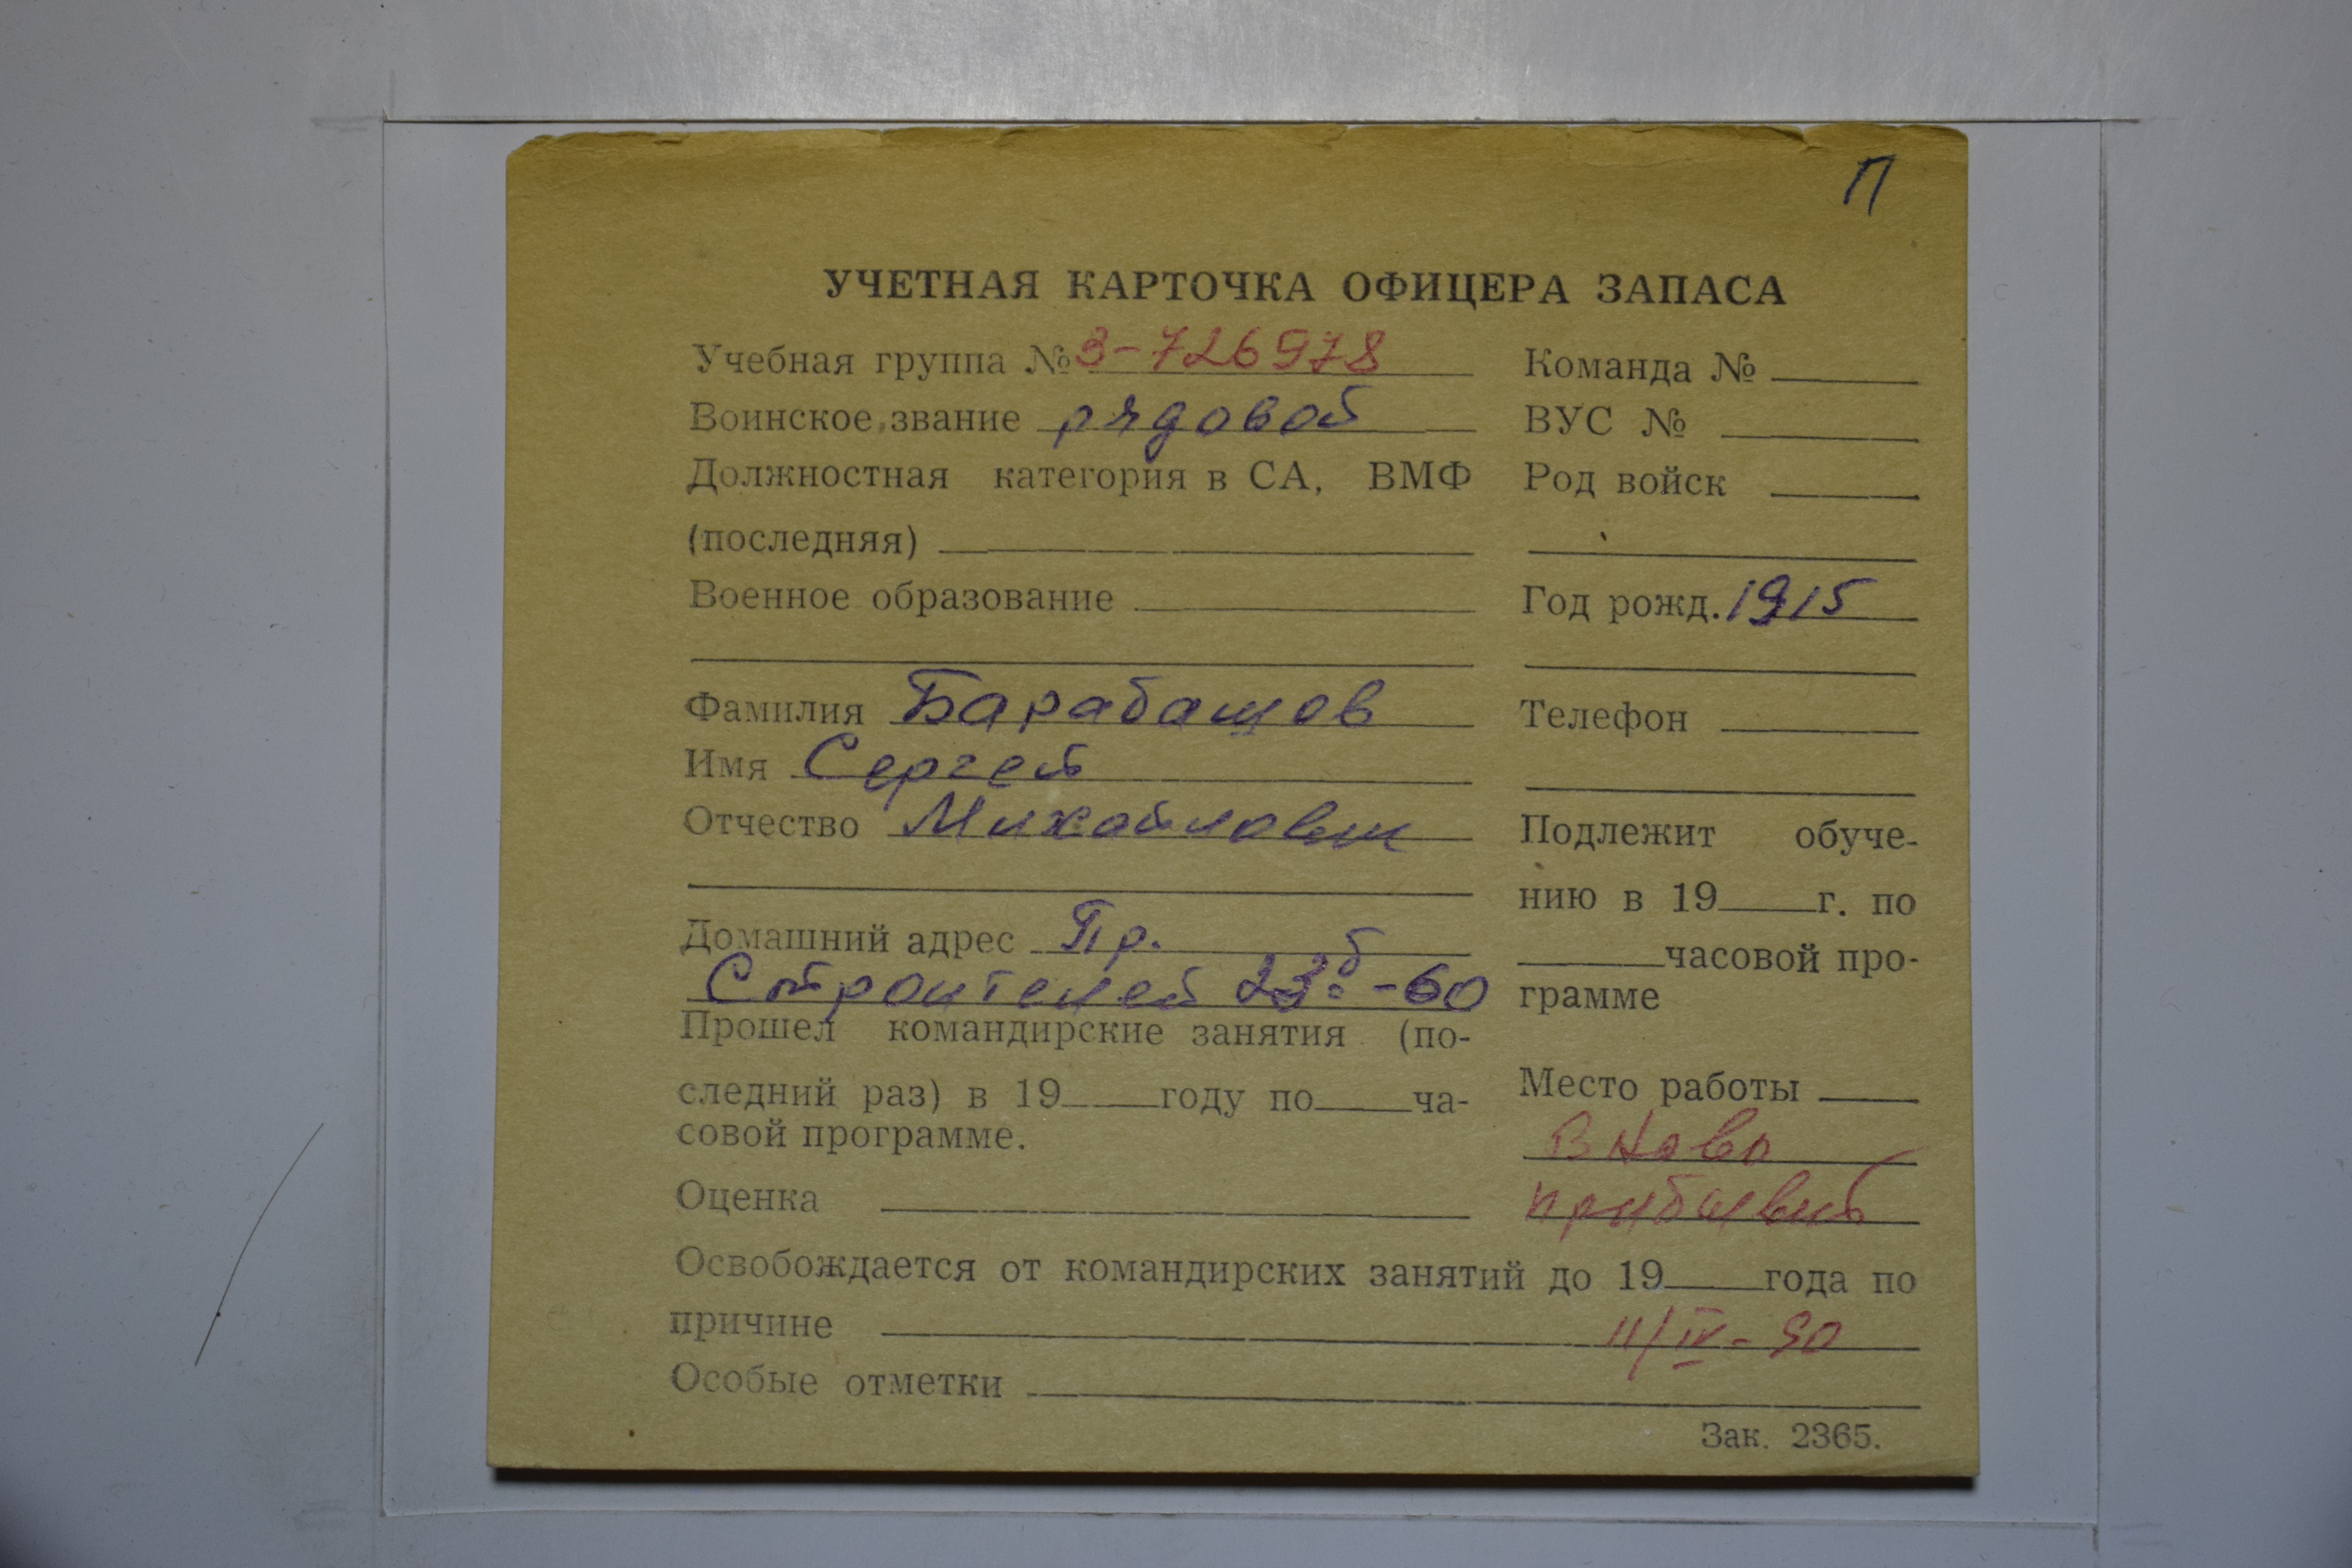 П
УЧЕТНАЯ КАРТОЧКА ОФИЦЕРА ЗАПАСА
Учебная группа № 3-726978
Воинское звание рядовой
Должностная категория в СА, ВМФ
(последняя)
Военное образование
Фамилия Барабашов
Имя Сергей
Отчество Михайлович
Домашний адрес Пр.
Строителей 23б-60
Прошел командирские занятия (по-
следний раз) в 19 году по ча-
совой программе.
Оценка
Команда №
ВУС №
Род войск
Год рожд. 1915
Телефон
Подлежит обуче-
нию в 19 г. по
часовой про-
грамме
Место работы
Вново
прибывший
Освобождается от командирских занятий до 19 года по
причине 11/IV-90
Особые отметки
Зак. 2365.